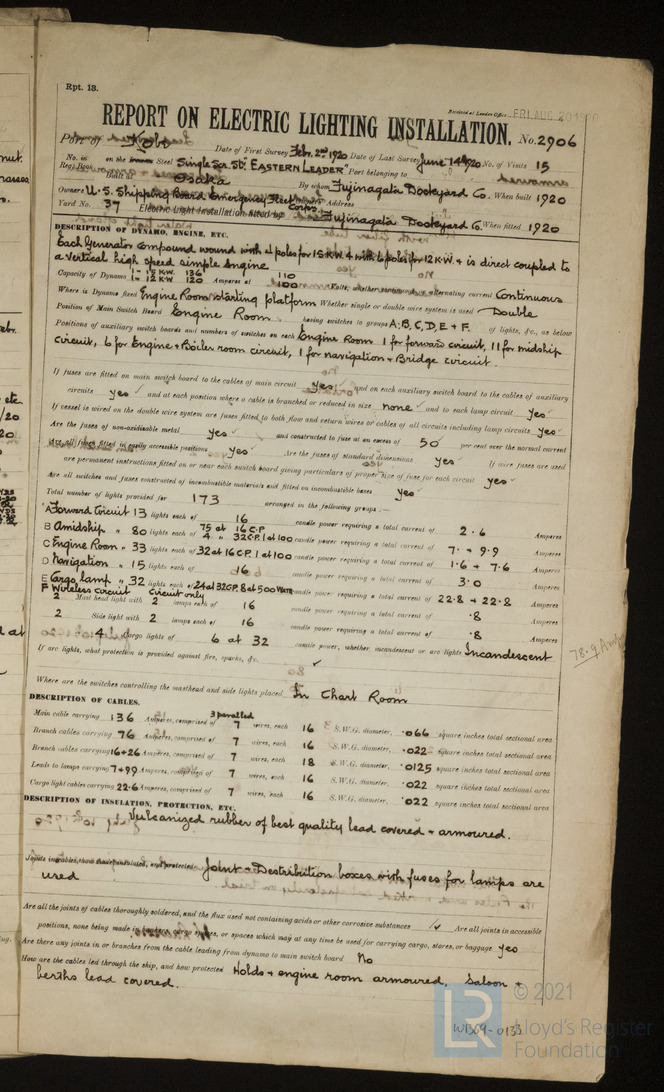 Rpt. 13.
Received at London Office FRI AUG 20 1920
REPORT ON ELECTRIC LIGHTING INSTALLATION. No. 2906
Port of Kobe Date of First Survey Feby. 2nd 1920 Date of Last Survey June 14th 1920 No. of Visits 15
No. in Reg. Book on the Steel Single Sc. St. "EASTERN LEADER" Port belonging to
Built at Osaka By whom Fujinagata Dockyard Co. When built 1920
Owners U.S. Shipping Board Emergency Fleet Corps. Address
Yard No. 37 Electric Light Installation fitted by Fujinagata Dockyard Co. When fitted 1920
DESCRIPTION OF DYNAMO, ENGINE, ETC.
Each Generator compound wound with 4 poles for 15 K.W. & with 6 poles for 12 K.W. & is direct coupled to
a vertical high speed simple engine
Capacity of Dynamo 1 - 15 K.W. 136 1 - 12 K.W. 120 Amperes at 110 100 Volts, whether continuous or alternating current Continuous
Where is Dynamo fixed Engine Room starting platform Whether single or double wire system is used Double
Position of Main Switch Board Engine Room having switches to groups A, B, C, D, E + F. of lights, &c., as below
Positions of auxiliary switch boards and numbers of switches on each Engine Room 1 for forward circuit, 11 for midship
circuit, 6 for Engine + Boiler room circuit, 1 for navigation + Bridge circuit.
If fuses are fitted on main switch board to the cables of main circuit yes and on each auxiliary switch board to the cables of auxiliary
circuits yes and at each position where a cable is branched or reduced in size none and to each lamp circuit yes
If vessel is wired on the double wire system are fuses fitted to both flow and return wires or cables of all circuits including lamp circuits yes
Are the fuses of non-oxidizable metal yes and constructed to fuse at an excess of 50 per cent over the normal current
Are all fuses fitted in easily accessible positions yes Are the fuses of standard dimensions yes If wire fuses are used
are permanent instructions fitted on or near each switch board giving particulars of proper size of fuse for each circuit yes
Are all switches and fuses constructed of incombustible materials and fitted on incombustible bases yes
Total number of lights provided for 173 arranged in the following groups :—
A Forward Circuit 13 lights each of 16 candle power requiring a total current of 2.6 Amperes
B Amidship " 80 lights each of 75 at 16 C.P. 4 " 32 C.P. 1 at 100 candle power requiring a total current of 7. + 9.9 Amperes
C Engine Room " 33 lights each of 32 at 16 C.P. 1 at 100 candle power requiring a total current of 1.6 + 7.6 Amperes
D Navigation " 15 lights each of 16 candle power requiring a total current of 3.0 Amperes
E Cargo lamp " 32 lights each of 24 at 32 C.P. 8 at 500 Watt candle power requiring a total current of 22.8 + 22.8 Amperes
F Wireless circuit circuit only
2 Mast head light with 2 lamps each of 16 candle power requiring a total current of .8 Amperes
2 Side light with 2 lamps each of 16 candle power requiring a total current of .8 Amperes
4 Cargo lights of 6 at 32 candle power, whether incandescent or arc lights Incandescent
78.9 Amp
If arc lights, what protection is provided against fire, sparks, &c.
Where are the switches controlling the masthead and side lights placed In Chart Room
DESCRIPTION OF CABLES.
Main cable carrying 136 Amperes, comprised of 3 paralled 7 wires, each 16 S.W.G. diameter, .066 square inches total sectional area
Branch cables carrying 76 Amperes, comprised of 7 wires, each 16 S.W.G. diameter, .022 square inches total sectional area
Branch cables carrying 16+26 Amperes, comprised of 7 wires, each 18 S.W.G. diameter, .0125 square inches total sectional area
Leads to lamps carrying 7+9.9 Amperes, comprised of 7 wires, each 16 S.W.G. diameter, .022 square inches total sectional area
Cargo light cables carrying 22.6 Amperes, comprised of 7 wires, each 16 S.W.G. diameter, .022 square inches total sectional area
DESCRIPTION OF INSULATION, PROTECTION, ETC.
Vulcanized rubber of best quality lead covered + armoured.
Joints in cables, how made, insulated, and protected Joint + Destribution boxes with fuses for lamps are
used
Are all the joints of cables thoroughly soldered, and the flux used not containing acids or other corrosive substances Are all joints in accessible
positions, none being made in bunkers, cargo spaces, or spaces which may at any time be used for carrying cargo, stores, or baggage yes
Are there any joints in or branches from the cable leading from dynamo to main switch board No
How are the cables led through the ship, and how protected Holds + engine room armoured, Saloon +
berths lead covered.
W1309-0133
LR © 2021
Lloyd's Register
Foundation